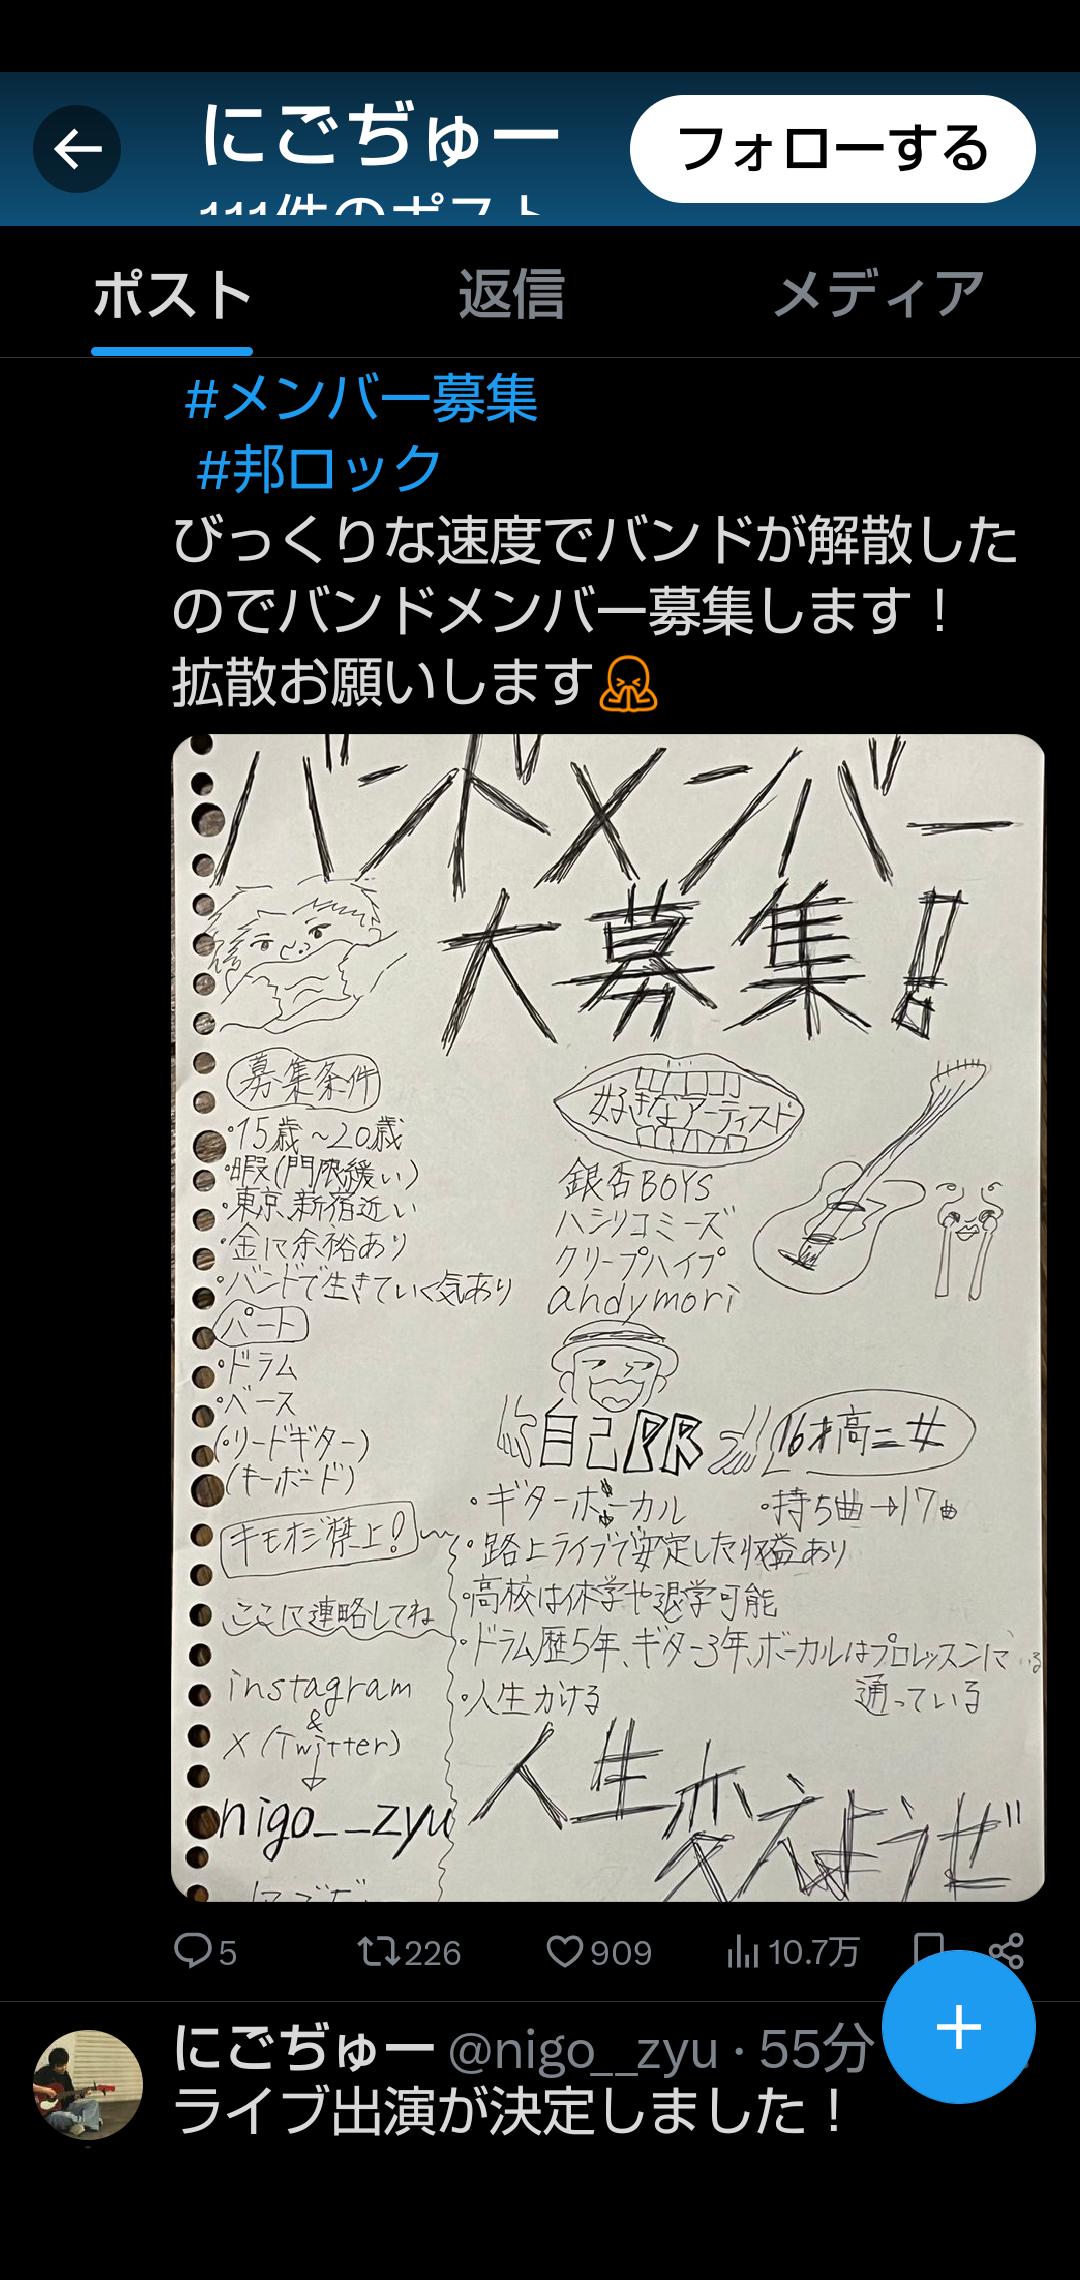 にごぢゅー
フォローする
111件のポスト
ポスト
返信
メディア
#メンバー募集
#邦ロック
びっくりな速度でバンドが解散した
のでバンドメンバー募集します！
拡散お願いします
バンドメンバー
大募集!
募集条件
・15歳~20歳
・暇(門限緩い)
・東京、新宿近い
・金に余裕あり
・バンドで生きていく気あり
パート
・ドラム
・ベース
(・リードギター)
(キーボード)
キモオジ禁止!
ここに連絡してね
instagram
&
X (Twitter)
nigo__zyu
にごぢゅー
好きなアーティスト
銀杏BOYS
ハシリコミーズ
クリープハイプ
andymori
自己PR
16才高二女
・ギターボーカル
・持ち曲→17曲
・路上ライブで安定した収益あり
・高校は休学や退学可能
・ドラム歴5年、ギター3年、ボーカルはプロレッスンに
通っている
・人生かける
人生変えようぜ
5
226
909
10.7万
にごぢゅー @nigo__zyu · 55分
ライブ出演が決定しました！